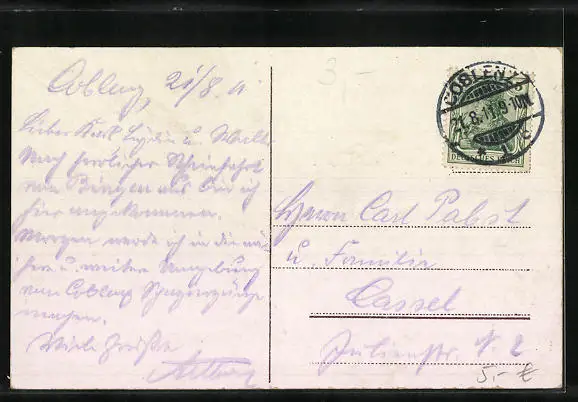 Coblenz 21/8. 11
Lieber Karl Lydia u. Walter
Nach herrlicher Rheinfahrt
von Bingen aus bin ich
hier angekommen.
Morgen werde ich in die nä-
here u. weitere Umgebung
von Coblenz Spaziergänge
machen.
Viele Grüße
Arthur
3,-
COBLENZ
21.8.11.9-10N.
DEUTSCHES REICH
Herrn Carl Pabst
u. Familie
Cassel
Julienstr. N. 2
5,- €